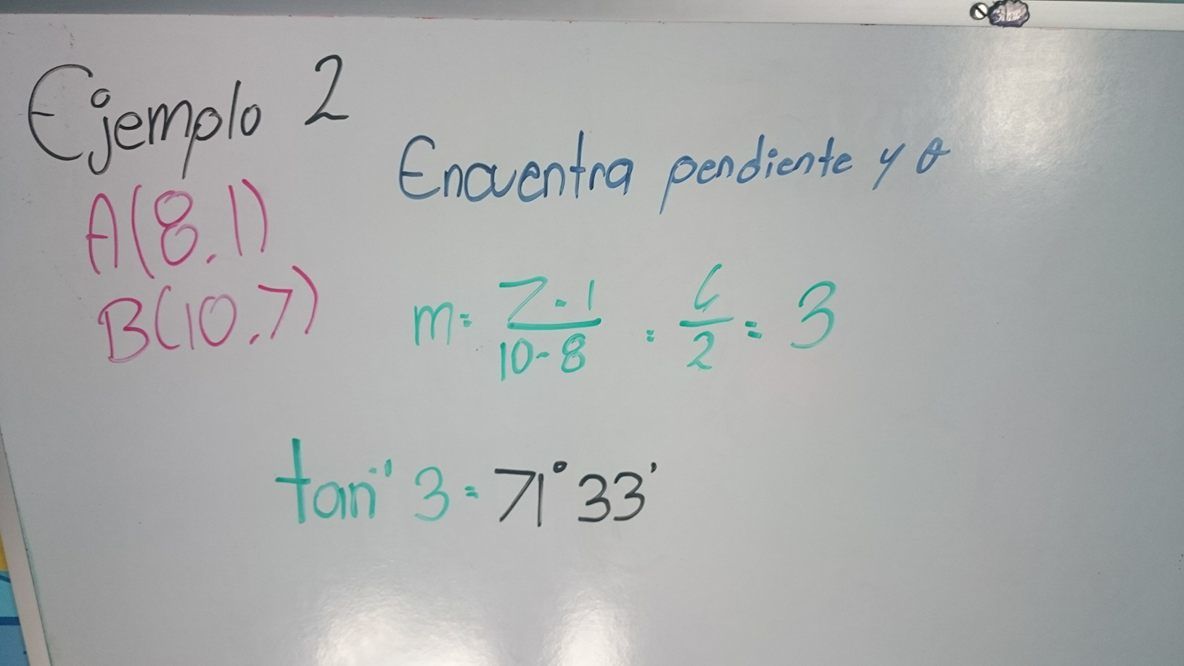 Ejemplo 2
Encuentra pendiente y θ
A(8,1)
B(10,7)
m= 7-1/10-8 = 6/2 = 3
tan⁻¹ 3 = 71° 33'